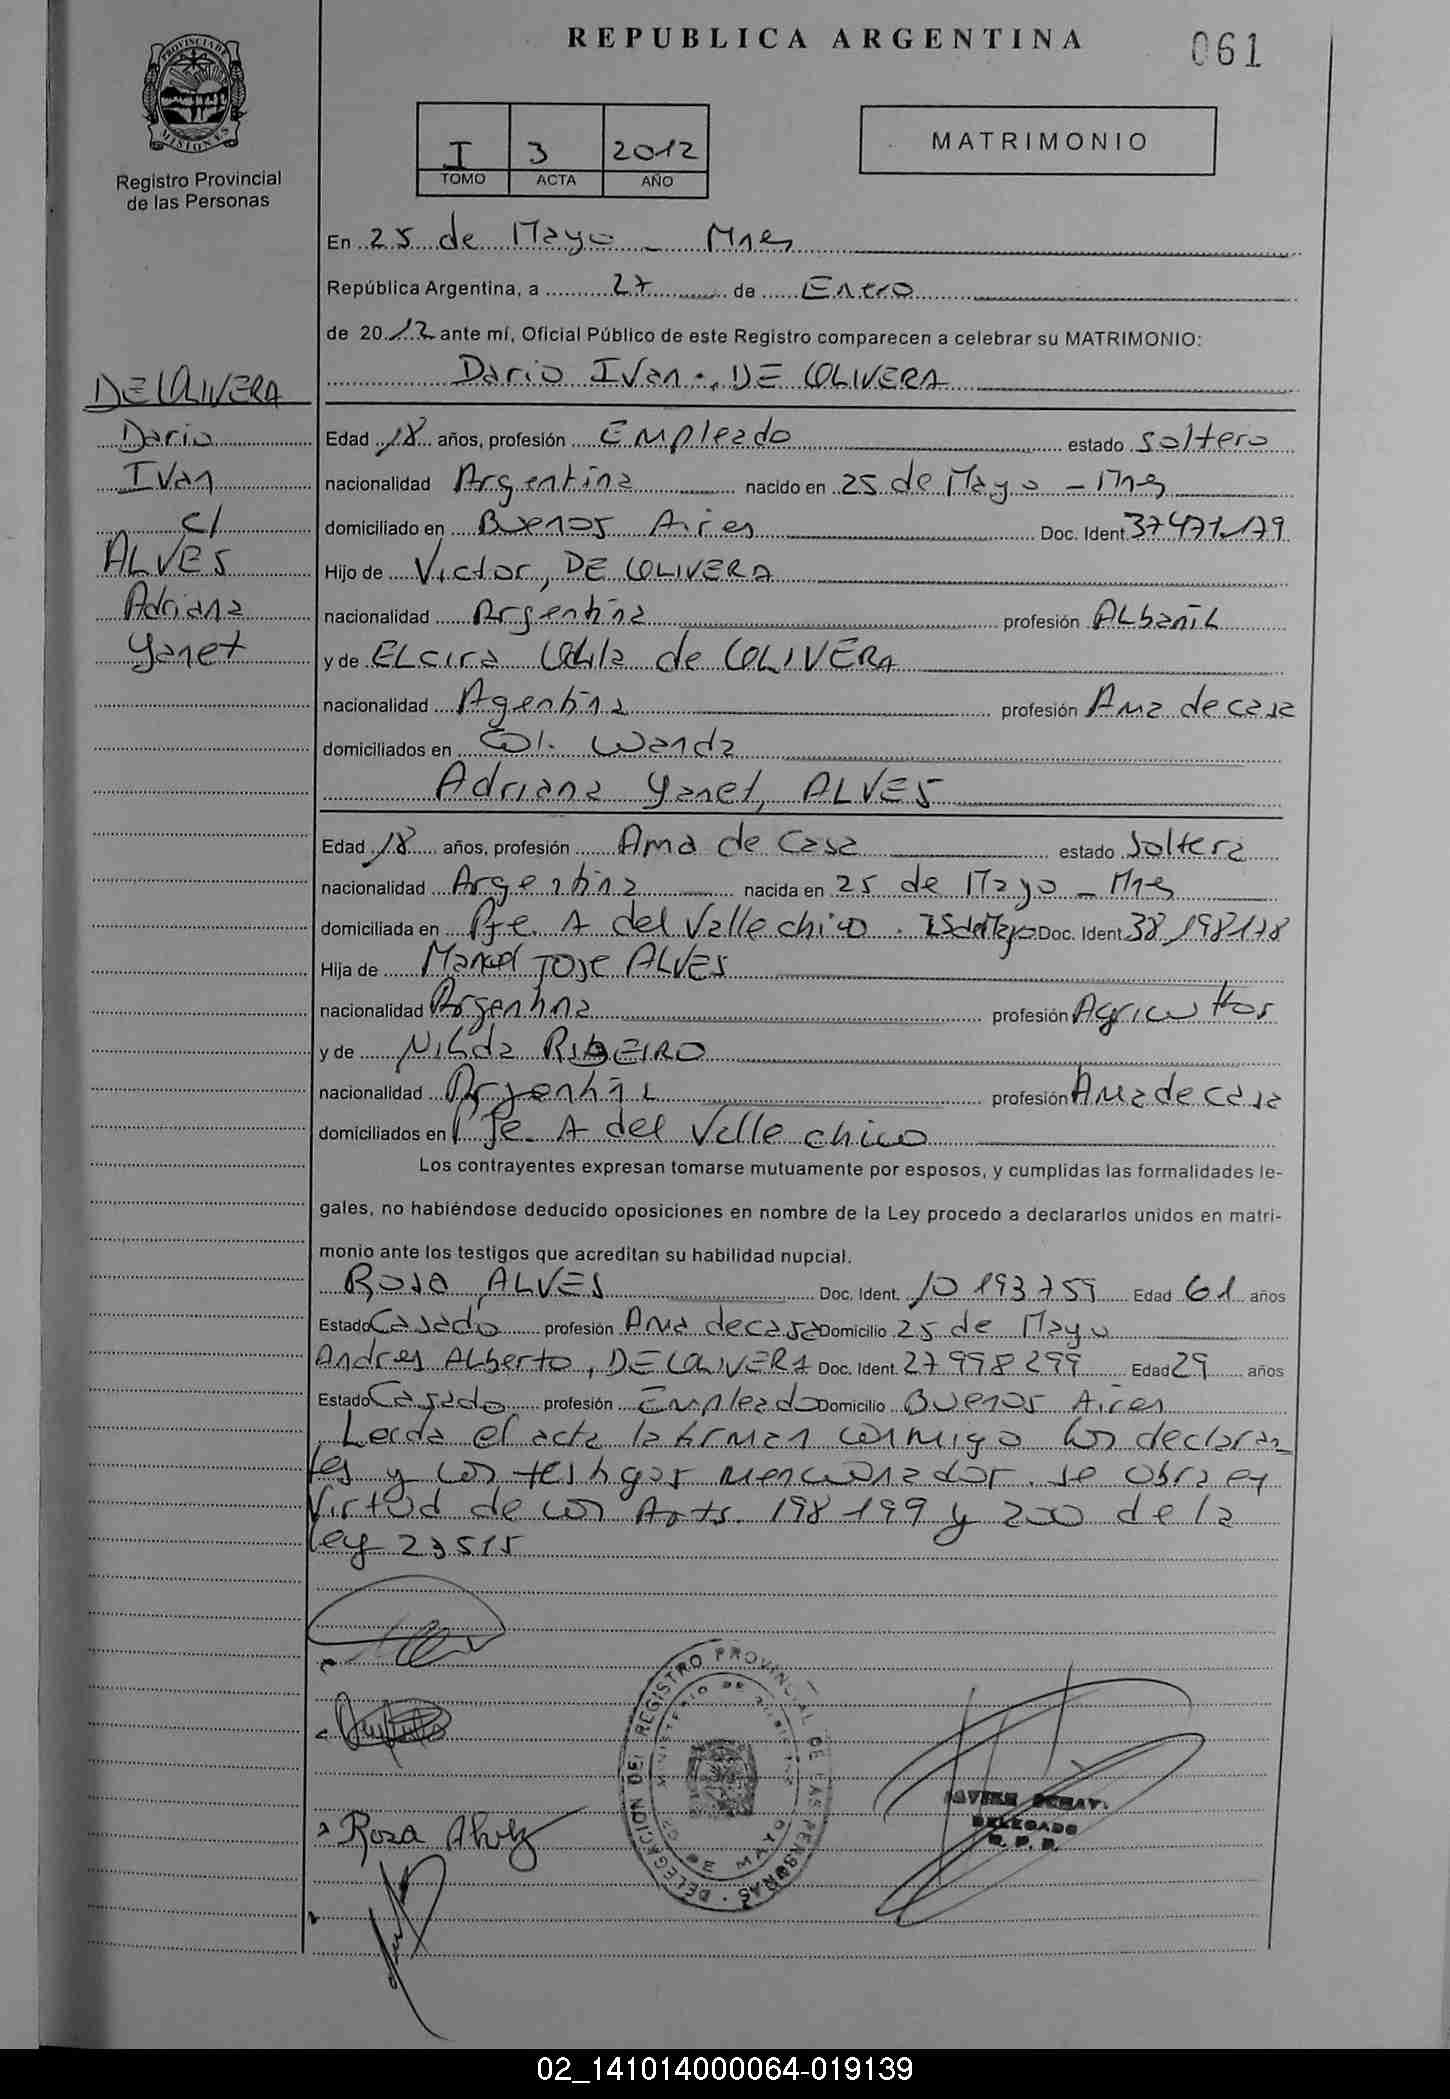 REPUBLICA ARGENTINA
061
PROVINCIA DE MISIONES
Registro Provincial
de las Personas
I 3 2012
TOMO ACTA AÑO
MATRIMONIO
En 25 de Mayo - Mnes
República Argentina, a 27 de Enero
de 2012 ante mí, Oficial Público de este Registro comparecen a celebrar su MATRIMONIO:
Dario Ivan, DE OLIVERA
DE OLIVERA
Dario
Ivan
c/
ALVES
Adriana
Yanet
Edad 18 años, profesión Empleado estado Soltero
nacionalidad Argentina nacido en 25 de Mayo - Mnes
domiciliado en Buenos Aires Doc. Ident. 37471179
Hijo de Victor, DE OLIVERA
nacionalidad Argentina profesión Albanil
y de Elcira de OLIVERA
nacionalidad Agentina profesión Ama de casa
domiciliados en Col. Wanda
Adriana Yanet, ALVES
Edad 18 años, profesión Ama de Casa estado Soltera
nacionalidad Argentina nacida en 25 de Mayo - Mnes
domiciliada en Pje. A del Valle chico. 25 de Mayo Doc. Ident. 38198178
Hija de JOSE ALVES
nacionalidad Argentina profesión Agricultor
y de Nilda RIBEIRO
nacionalidad Argentina profesión Ama de casa
domiciliados en Pje. A del Valle chico
Los contrayentes expresan tomarse mutuamente por esposos, y cumplidas las formalidades le-
gales, no habiéndose deducido oposiciones en nombre de la Ley procedo a declararlos unidos en matri-
monio ante los testigos que acreditan su habilidad nupcial.
Rosa, ALVES Doc. Ident. 10193759 Edad 61 años
Estado Casado profesión Ama de casa Domicilio 25 de Mayo
Andres Alberto, DE OLIVERA Doc. Ident. 27998299 Edad 29 años
Estado Casado profesión Empleado Domicilio Buenos Aires
Leida el acta la firman conmigo los declaran
tes y los testigos mencionados. Se obra en
Virtud de los Arts. 198-199 y 200 de la
ley 23515
Rosa Alvez
DELEGACION DEL REGISTRO PROVINCIAL DE LAS PERSONAS
MINISTERIO DE
DE MAYO
DELEGADO
R. P. P.
02_141014000064-019139